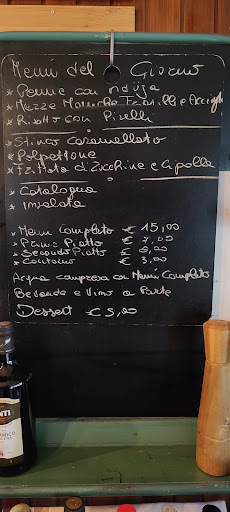 Menù del Giorno
* Penne con nduja
* Mezze Maniche Friarielli e Acciughe
* Risotto con Piselli
* Stinco Caramellato
* Polpettone
* Frittata di Zucchine e Cipolla
* Catalogna
* Insalata
* Menù Completo € 15,00
* Primo Piatto € 7,00
* Secondo Piatto € 8,00
* Contorno € 3,00
Acqua compresa con Menù Completo
Bevande e Vino a Parte
Dessert € 5,00